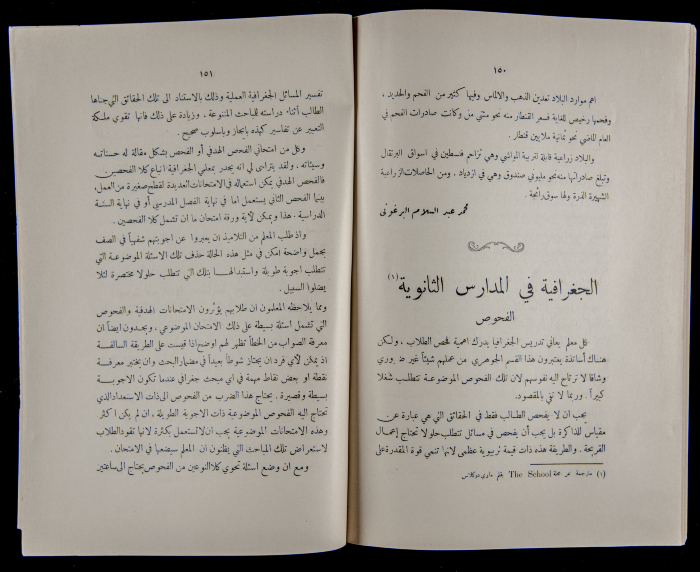 ١٥٠
اهم موارد البلاد تعدين الذهب والالماس وفيها كثير من الفحم والحديد .
وفحمها رخيص للغاية فسعر القنطار منه نحو مئتي مل وكانت صادرات الفحم في
العام الماضي نحو ثمانية ملايين قنطار .
والبلاد زراعية قابلة لتربية المواشي وهي تزاحم فلسطين في اسواق البرتقال
وتبلغ صادراتها منه نحو مليوني صندوق وهي في ازدياد . ومن الحاصلات الزراعية
الشهيرة الذرة ولها سوق رائجة .
محمد عبد السلام البرغوثي
الجغرافية في المدارس الثانوية (١)
الفحوص
كل معلم يعاني تدريس الجغرافيا يدرك اهمية فحص الطلاب ، ولكن
هناك أساتذة يعتبرون هذا القسم الجوهري من عملهم شيئاً غير ضروري
وشاقا لا ترتاح اليه نفوسهم لان تلك الفحوص الموضوعة تتطلب شغلا
كبيراً . وربما لا تفي بالمقصود .
يجب ان لا يفحص الطالب فقط في الحقائق التي هي عبارة عن
مقياس للذاكرة بل يجب أن يفحص في مسائل تتطلب حلولا تحتاج إعمال
القريحة . والطريقة هذه ذات قيمة تربيوية عظمى لانها تنمي قوة المقدرة على
(١) مترجمة عن مجلة The School بقلم ماري دوكلاس
١٥١
تفسير المسائل الجغرافية العملية وذلك بالاستناد الى تلك الحقائق التي جناها
الطالب أثناء دراسته للمباحث المتنوعة . وزيادة على ذلك فانها تقوي ملكة
التعبير عن تفاسير كهذه بايجاز وباسلوب صحيح .
وكل من امتحاني الفحص الهدفي أو الفحص بشكل مقالة له حسناته
وسيئاته . ولقد يتراءى لي انه يجدر بمعلمي الجغرافية اتباع كلا الفحصين
فالفحص الهدفي يمكن استعماله في الامتحانات العديدة لقطع صغيرة من العمل،
بينما الفحص الثاني يستعمل اما في نهاية الفصل المدرسي أو في نهاية السنة
الدراسية . هذا ويمكن لأية ورقة امتحان ما ان تشمل كلا الفحصين .
واذا طلب المعلم من التلاميذ ان يعبروا عن اجوبتهم شفهياً في الصف
بجمل واضحة امكن في مثل هذه الحالة حذف تلك الاسئلة الموضوعة التي
تتطلب اجوبة طويلة واستبدالها بتلك التي تتطلب حلولا مختصرة لئلا
يضلوا السبيل .
ومما يلاحظه المعلمون ان طلابهم يؤثرون الامتحانات الهدفية والفحوص
التي تشمل اسئلة بسيطة على ذلك الامتحان الموضوعي . ويجدون ايضاً ان
معرفة الصواب من الخطأ تظهر لهم اوضح اذا قيست على الطريقة السالفة
اذ يمكن لأي فرد ان يجتاز شوطاً بعيداً في مضمار البحث وان يختبر معرفة
نقطة او بعض نقاط مهمة في اي مبحث جغرافي عندما تكون الاجوبة
بسيطة وقصيرة . يحتاج هذا الضرب من الفحوص الى ذات الاستعداد الذي
تحتاج اليه الفحوص الموضوعية ذات الاجوبة الطويلة . ان لم يكن اكثر
وهذه الامتحانات الموضوعية يجب ان لا تستعمل بكثرة لانها تقود الطلاب
لاستعراض تلك المباحث التي يظنون ان المعلم سيضعها في الامتحان .
ومع ان وضع اسئلة تحوي كلا النوعين من الفحوص يحتاج الى ساعتين